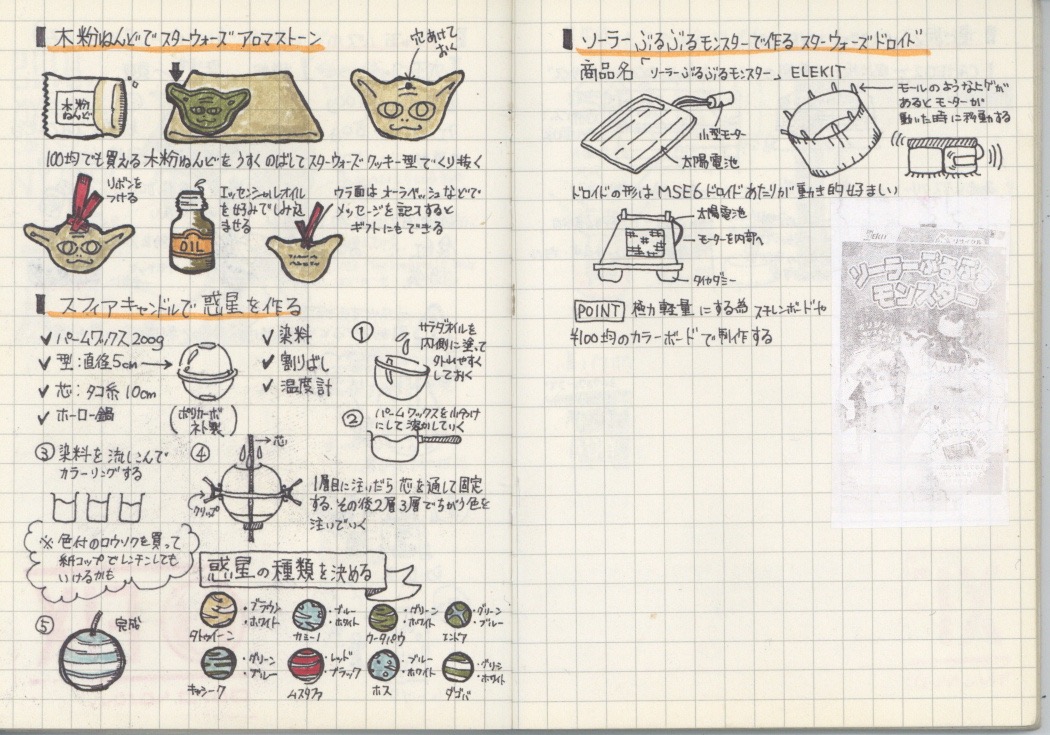 木粉ねんどでスターウォーズアロマストーン
穴あけて
おく
木粉
ねんど
100均でも買える木粉ねんどをうすくのばしてスターウォーズクッキー型でくり抜く
リボンを
つける
OIL
エッセンシャルオイル
を好みでしみ込
ませる
ウラ面はオーラベッシュなどで
メッセージを記入すると
ギフトにもできる
スフィアキャンドルで惑星を作る
✓ パームワックス200g
✓ 型:直径5cm
✓ 芯:タコ糸10cm
✓ ホーロー鍋
(ポリカーボネート製)
✓ 染料
✓ 割りばし
✓ 温度計
①
サラダオイルを
内側に塗って
外れやすく
しておく
②
パームワックスを小分け
にして溶かしていく
③ 染料を流しこんで
カラーリングする
④
芯
クリップ
1層目に注いだら芯を通して固定
する、その後2層3層でちがう色を
注いでいく
※ 色付のロウソクを買って
紙コップでレンチンしても
いけるかも
惑星の種類を決める
⑤ 完成
・ブラウン
・ホワイト
タトゥイーン
・ブルー
・ホワイト
カミーノ
・グリーン
・ホワイト
ウータパウ
・グリーン
・ブルー
エンドア
・グリーン
・ブルー
キャシーク
・レッド
・ブラック
ムスタファ
・ブルー
・ホワイト
ホス
・グリーン
・ホワイト
ダゴバ
ソーラーぶるぶるモンスターで作るスターウォーズドロイド
商品名「ソーラーぶるぶるモンスター」 ELEKIT
小型モーター
太陽電池
モールのような上ゲが
あるとモーターが
動いた時に移動する
ドロイドの形はMSE6ドロイドあたりが動き的好ましい
太陽電池
モーターを内部へ
タイヤダミー
POINT 極力軽量にする為スチレンボードや
¥100均のカラーボードで制作する
ソーラーぶるぶる
モンスター